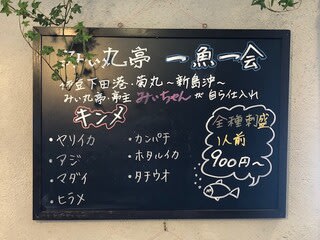 みい丸亭 一魚一会
伊豆下田港・菊丸～新島沖～
みい丸亭・亭主 みいちゃんが自ら仕入れ
キンメ
・ヤリイカ
・アジ
・マダイ
・ヒラメ
・カンパチ
・ホタルイカ
・タチウオ
全種刺盛
1人前
900円～